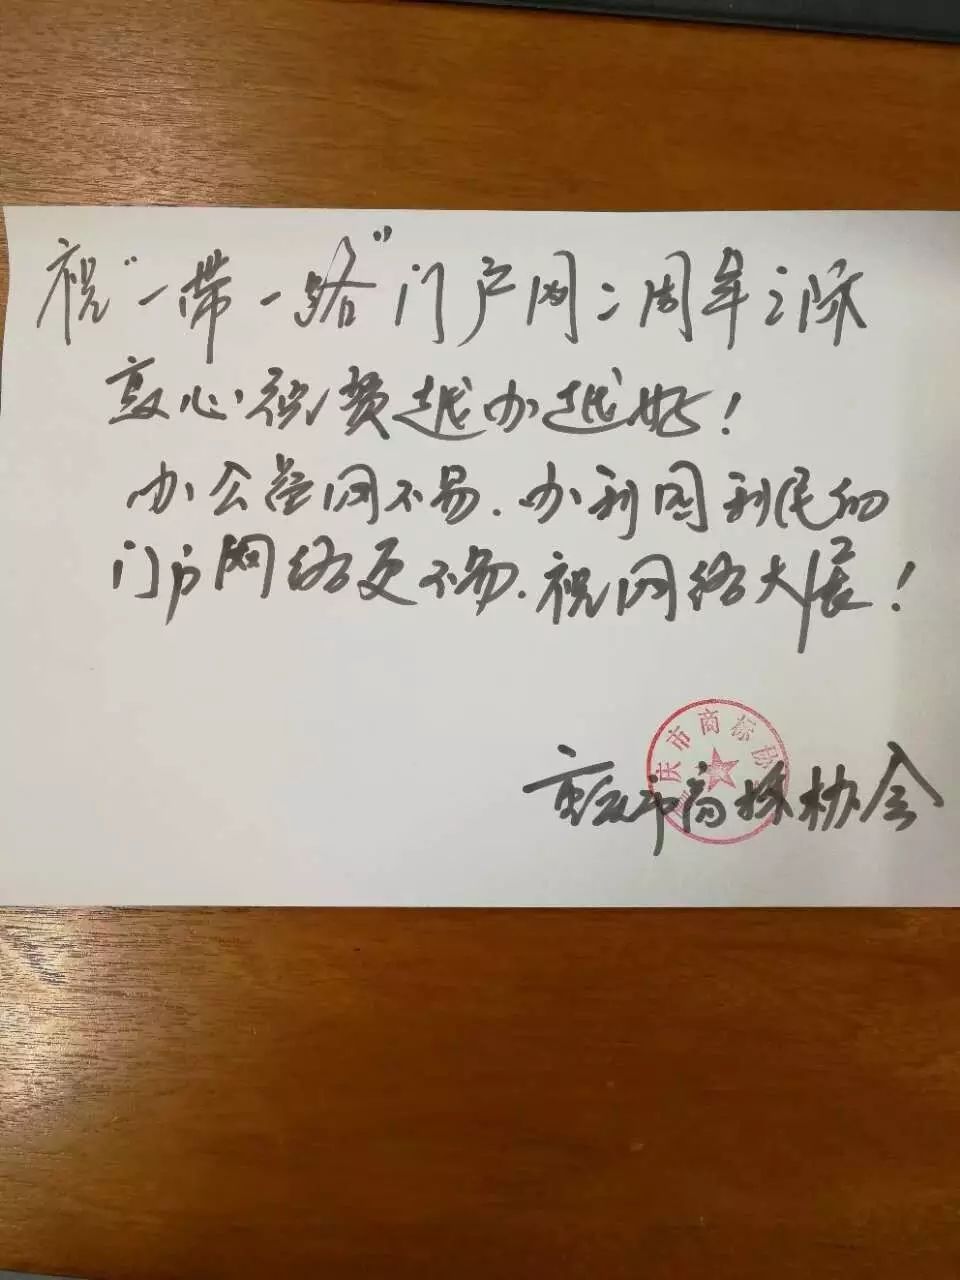 祝“一带一路”门户网二周年之际
衷心祝贺越办越好！
办公益网不易.办利国利民的
门户网络更不易.祝网络大展！
重庆市商标协会
庆市商标协